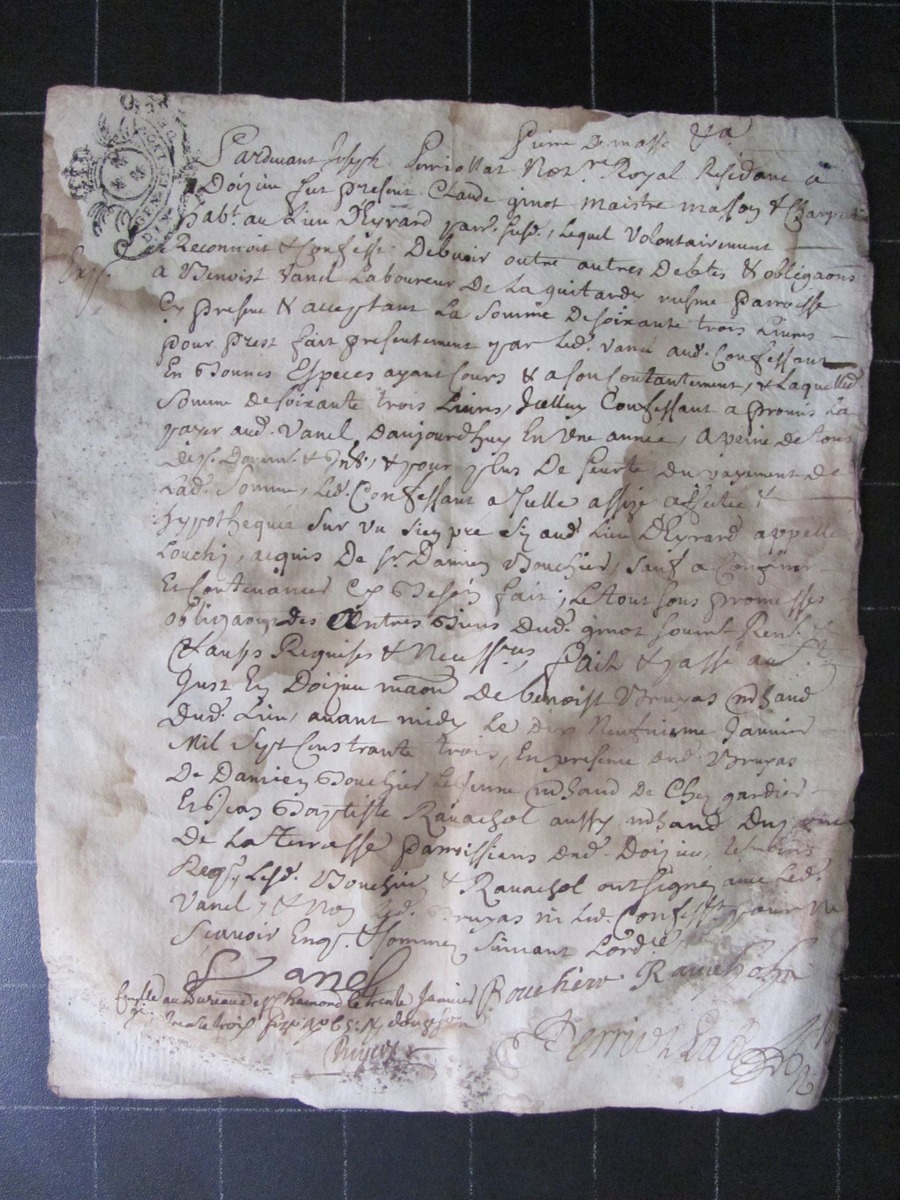 Pierre Demasse
Pardevant Joseph Perriollat Not.re Royal Residant a
Doizieu fut present Claude ginot maistre masson & Charp
habt. au Lieu DEyrard parr. susd. Lequel Volontairement
Reconnoit & Confesse Debvoir outre autres Debtes & obligaons
Exp.
a Benoist Vanel Laboureur De La guitardy mesme parroisse
Cy present & acceptant La Somme De soixante trois Livres
pour prest fait presentement par led. Vanel aud. Confessant
En Bonnes Especes ayant Cours & a son Contantement, & Laquelle
Somme de soixante trois Livres, Jcelluy Confessant a promis La
payer aud. Vanel, Daujourdhuy En Une année, a peine de tous
Desp. Domm. & Jnt., & pour plus De seurté du payement de
Lad. Somme, Led. Confessant a Jcelle assize affectée &
hypothequée sur un sien pré sis aud. Lieu DEyrard appellé
Louchi, acquis De Sr. Damien Bouchier, sauf a Confiner
Et Contenances Cy Besoin fait; Le tout sous promesses
obligaons des autres Biens dud. ginot soumt. Ren.
Clauses Requises & Necess.res, fait & passé au
Just Ey Doizieu maon De Benoist Bruyas mchand
Dud. Lieu, avant midy Le dix Neufvieme Janvier
Mil Sept Cens trante trois, En presence dud. Bruyas
De Damien Bouchier Lejeune mchand de Chez gardier
Et Jean Baptiste Ravachol aussy mchand Du
De La terrasse parroissiens dud. Doizieu, tesmoins
Req., Lesd. Bouchier & Ravachol ont signé avec Led.
Vanel, & Non Led. Bruyas ni Led. Confesst. pour ne
Scavoir Enqs. & Sommez suivant Lord.ce
Vanel Bouchier Ravachol
au Bureau de St Chamond le trente Janvier
trente trois
Perriollat